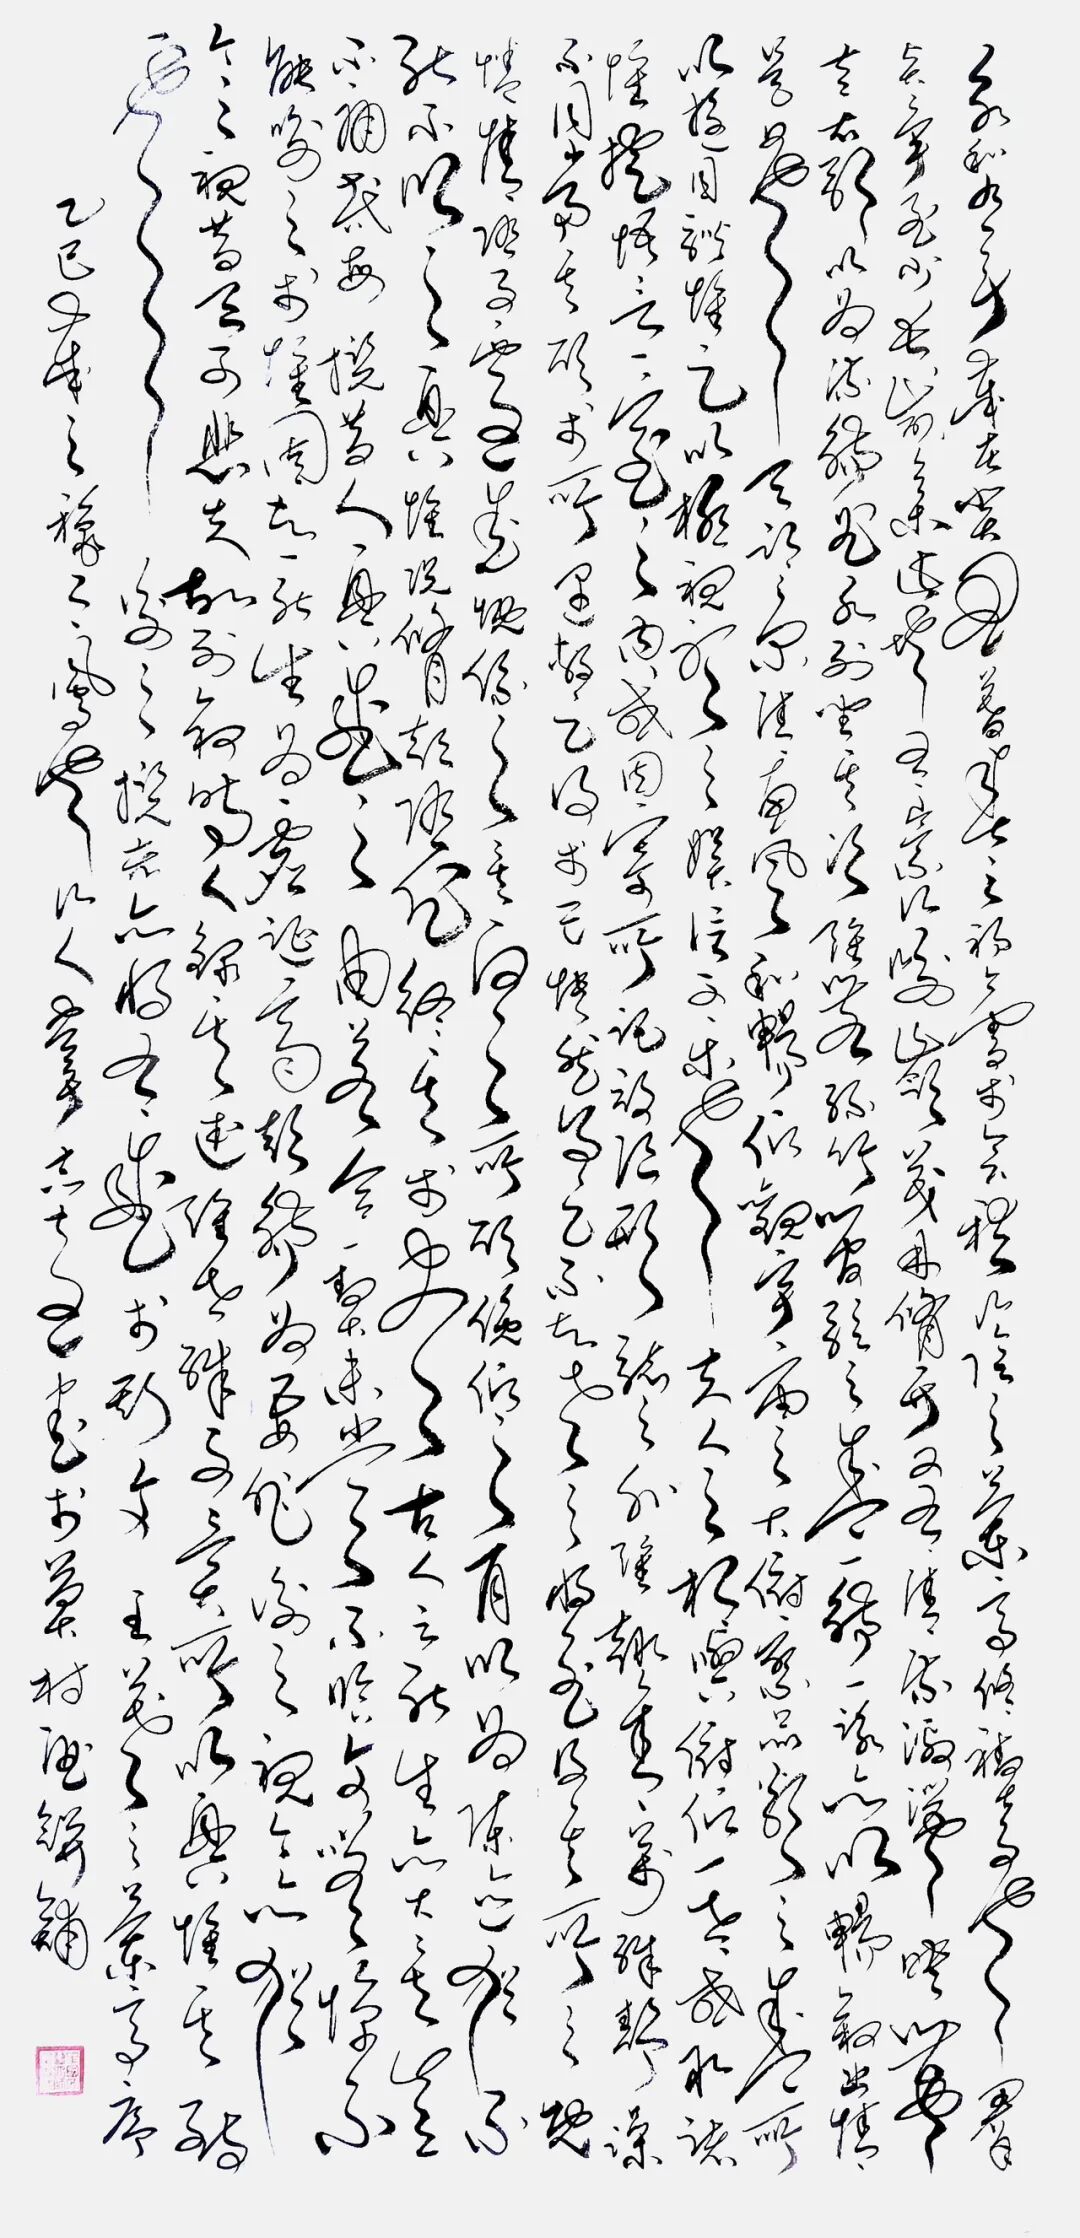 永和九年歲在癸丑暮春之初會於會稽山陰之蘭亭修禊事也群
賢畢至少長咸集此地有崇山峻領茂林修竹又有清流激湍映帶
左右引以為流觴曲水列坐其次雖無絲竹管弦之盛一觴一詠亦足以暢敘幽情
是日也天朗氣清惠風和暢仰觀宇宙之大俯察品類之盛所
以遊目騁懷足以極視聽之娛信可樂也夫人之相與俯仰一世或取諸
懷抱悟言一室之內或因寄所託放浪形骸之外雖趣舍萬殊靜躁
不同當其欣於所遇暫得於己快然自足不知老之將至及其所之既
倦情隨事遷感慨係之矣向之所欣俛仰之間以為陳跡猶不
能不以之興懷況修短隨化終期於盡古人云死生亦大矣豈
不痛哉每攬昔人興感之由若合一契未嘗不臨文嗟悼不
能喻之於懷固知一死生為虛誕齊彭殤為妄作後之視今亦猶
今之視昔悲夫故列敘時人錄其所述雖世殊事異所以興懷其致
一也後之攬者亦將有感於斯文 王羲之蘭亭序
乙巳歲之 書於